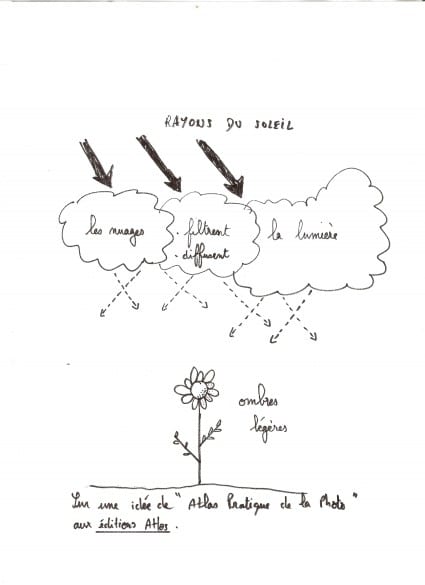 RAYONS DU SOLEIL
les nuages
. filtrent
. diffusent
la lumière
ombres
légères
Sur une idée de "Atlas Pratique de la Photo"
aux éditions Atlas.